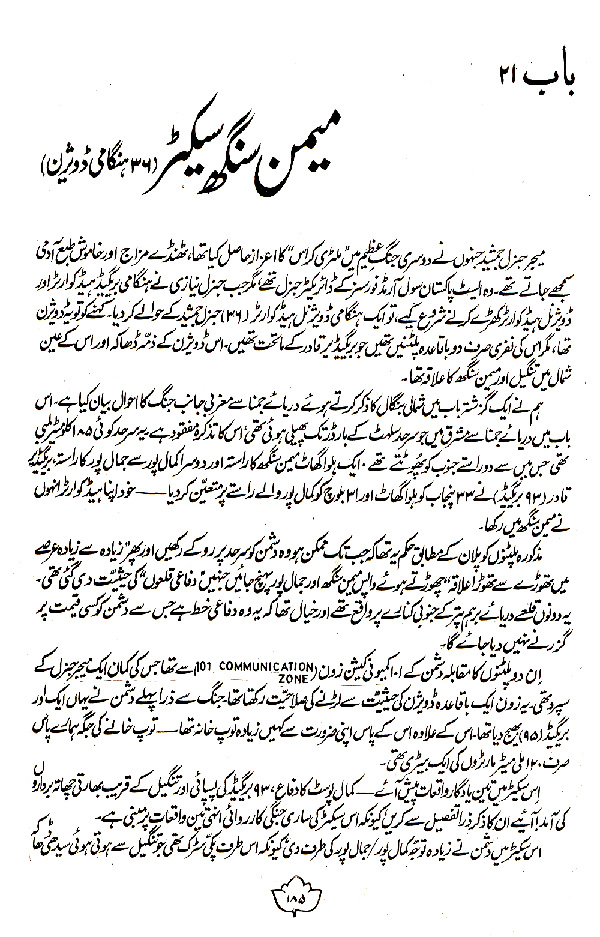 باب ۲۱
میمن سنگھ سیکٹر (۳۶ ہنگامی ڈویژن)
میجر جنرل جمشید جنہوں نے دوسری جنگ عظیم میں "ملٹری کراس" کا اعزاز حاصل کیا تھا، ٹھنڈے مزاج اور خاموش طبع آدمی
سمجھے جاتے تھے۔ وہ ایسٹ پاکستان سول آرمڈ فورسز کے ڈائریکٹر جنرل تھے، مگر جب جنرل نیازی نے ہنگامی بریگیڈ ہیڈ کوارٹر اور
ڈویژنل ہیڈ کوارٹر کھڑے کرنے شروع کیے، تو ایک ہنگامی ڈویژنل ہیڈ کوارٹر (۳۶) جنرل جمشید کے حوالے کر دیا۔ کہنے کو تو یہ ڈویژن
تھا، مگر اس کی نفری صرف دو باقاعدہ پلٹنیں تھیں جو بریگیڈیر قادر کے ماتحت تھیں۔ اس ڈویژن کے ذمہ ڈھاکہ اور اس کے عین
شمال میں تنگیل اور میمن سنگھ کا علاقہ تھا۔
ہم نے ایک گزشتہ باب میں شمالی بنگال کا ذکر کرتے ہوئے دریائے جمنا سے مغربی جانب جنگ کا احوال بیان کیا ہے۔ اس
باب میں دریائے جمنا سے مشرق میں جو سرحد سلہٹ کے بارڈر تک پھیلی ہوئی تھی، اس کا تذکرہ مفقود ہے۔ یہ سرحد کوئی ۱۸۵ کلومیٹر لمبی
تھی جس میں سے دو راستے جنوب کو پھوٹتے تھے۔ ایک ہلواگھاٹ، میمن سنگھ کا راستہ اور دوسرا کمال پور سے جمال پور کا راستہ، بریگیڈیر
قادر (۹۳ بریگیڈ) نے ۳۳ پنجاب کو ہلواگھاٹ اور ۳۱ بلوچ کو کمال پور والے راستے پر متعین کر دیا —— خود اپنا ہیڈ کوارٹر انہوں
نے میمن سنگھ میں رکھا۔
مذکورہ پلٹنوں کو پلان کے مطابق حکم یہ تھا کہ جب تک ممکن ہو وہ دشمن کو سرحد پر روکے رکھیں اور پھر "زیادہ سے زیادہ عرصے
میں تھوڑے سے تھوڑا علاقہ" چھوڑتے ہوئے واپس میمن سنگھ اور جمال پور پہنچ جائیں جنہیں "دفاعی قلعوں" کی حیثیت دی گئی تھی۔
یہ دونوں قلعے دریائے برہم پتر کے جنوبی کنارے پر واقع تھے اور خیال تھا کہ یہ وہ دفاعی خط ہے جس سے دشمن کو کسی قیمت پر
گزرنے نہیں دیا جائے گا۔
ان دو پلٹنوں کا مقابلہ دشمن کے ۱۰۱ کمیونی کیشن زون (101 COMMUNICATION ZONE) سے تھا جس کی کمان ایک میجر جنرل کے
سپرد تھی۔ یہ زون ایک باقاعدہ ڈویژن کی حیثیت سے لڑنے کی صلاحیت رکھتا تھا۔ جنگ سے ذرا پہلے دشمن نے یہاں ایک اور
بریگیڈ (۹۵) بھیج دیا تھا۔ اس کے علاوہ اس کے پاس اپنی ضرورت سے کہیں زیادہ توپ خانہ تھا — توپ خانے کی جگہ ہمارے پاس
صرف ۱۲۰ ملی میٹر مارٹروں کی ایک بیٹری تھی۔
اس سیکٹر میں تین یادگار واقعات پیش آئے — کمال پور پوسٹ کا دفاع، ۹۳ بریگیڈ کی پسپائی اور تنگیل کے قریب بھارتی چھاتہ برداروں
کی آمد! آئیے ان کا ذکر ذرا تفصیل سے کریں کیونکہ اس سیکٹر کی ساری جنگی کارروائی انہی تین واقعات پر مبنی ہے۔
اس سیکٹر میں دشمن نے زیادہ توجہ کمال پور/جمال پور کی طرف دی کیونکہ اس طرف پکی سڑک تھی جو تنگیل سے ہوتی ہوئی سیدھی ڈھاکہ
۱۸۵